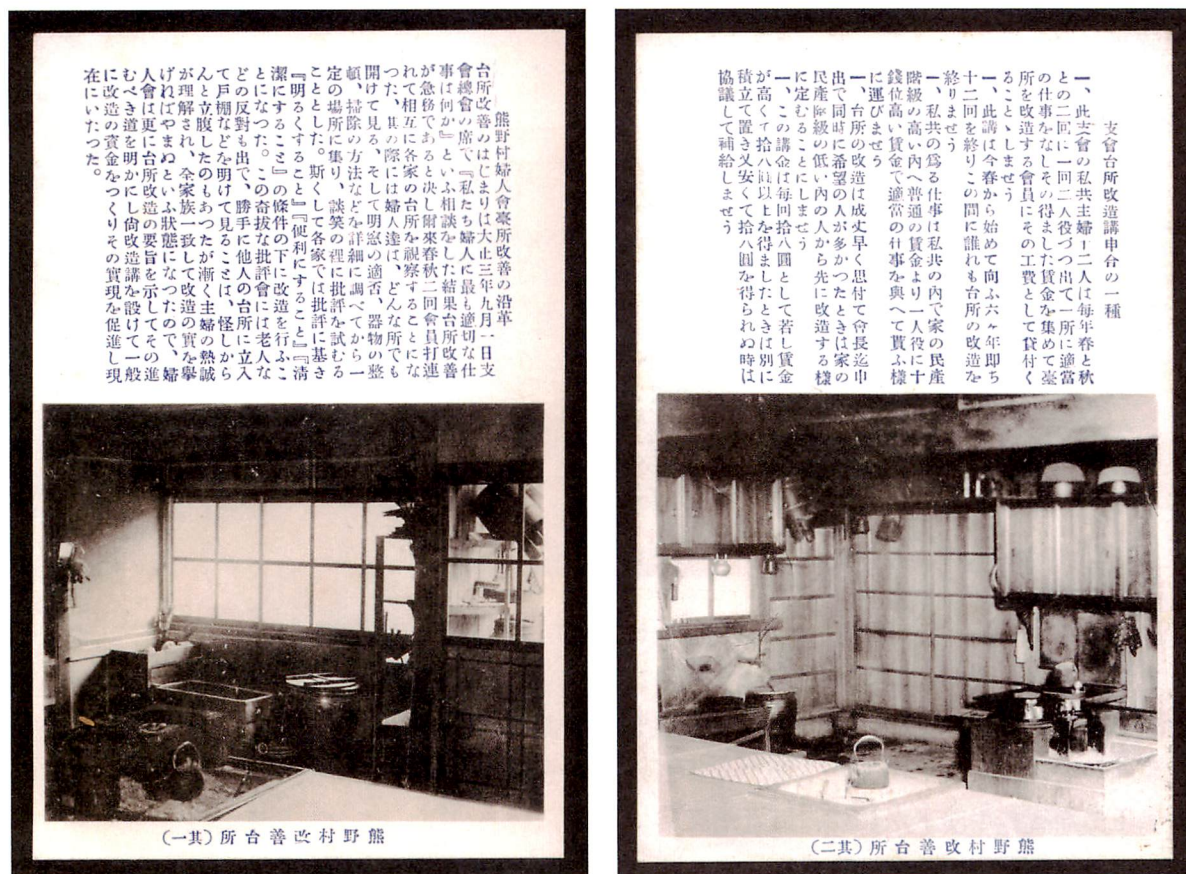 熊野村婦人會臺所改善の沿革
台所改善のはじまりは大正三年九月一日支
會總會の席で『私たち婦人に最も適切な仕
事は何か』といふ相談をした結果台所改善
が急務であると決し爾來春秋二回會員打連
れて相互に各家の台所を視察することにな
つた、其の際には婦人達は、どんな所でも
開けて見る、そして明窓の適否、器物の整
頓、掃除の方法などを詳細に調べてから一
定の場所に集り、談笑の裡に批評を試むる
こととした。斯くして各家では批評に基き
『明るくすること』『便利にすること』『清
潔にすること』の條件の下に改造を行ふこ
とになつた。この奇拔な批評會には老人な
どの反對も出で、勝手に他人の台所に立入
て戸棚などを明けて見ることは、怪しから
んと立腹したのもあつたが漸く主婦の熱誠
が理解され、全家族一致して改造の實を擧
げねばやまぬといふ狀態になつたので、婦
人會は更に台所改造の要旨を示してその進
むべき道を明かにし尙改造講を設けて一般
に改造の資金をつくりその實現を促進し現
在にいたつた。
熊野村改善台所（其一）
支會台所改造講申合の一種
一、此支會の私共主婦十二人は每年春と秋
との二回に一回二人役づつ出て一所に適當
の仕事をなしその得ました賃金を集めて臺
所を改造する會員にその工費として貸付く
ることにしませう
一、此講は今春から始めて向ふ六ヶ年即ち
十二回を終りこの間に誰れも台所の改造を
終りませう
一、私共の爲る仕事は私共の內で家の民產
階級の高い內へ普通の賃金より一人役に十
錢位高い賃金で適當の仕事を與へて貰ふ樣
に運びませう
一、台所の改造は成丈早く思付て會長迄申
出で同時に希望の人が多かつたときは家の
民產階級の低い內の人から先に改造する樣
に定むることにしませう
一、この講金は每回拾八圓として若し賃金
が高くて拾八圓以上を得ましたときは別に
積立て置き又安くて拾八圓を得られぬ時は
協議して補給しませう
熊野村改善台所（其二）